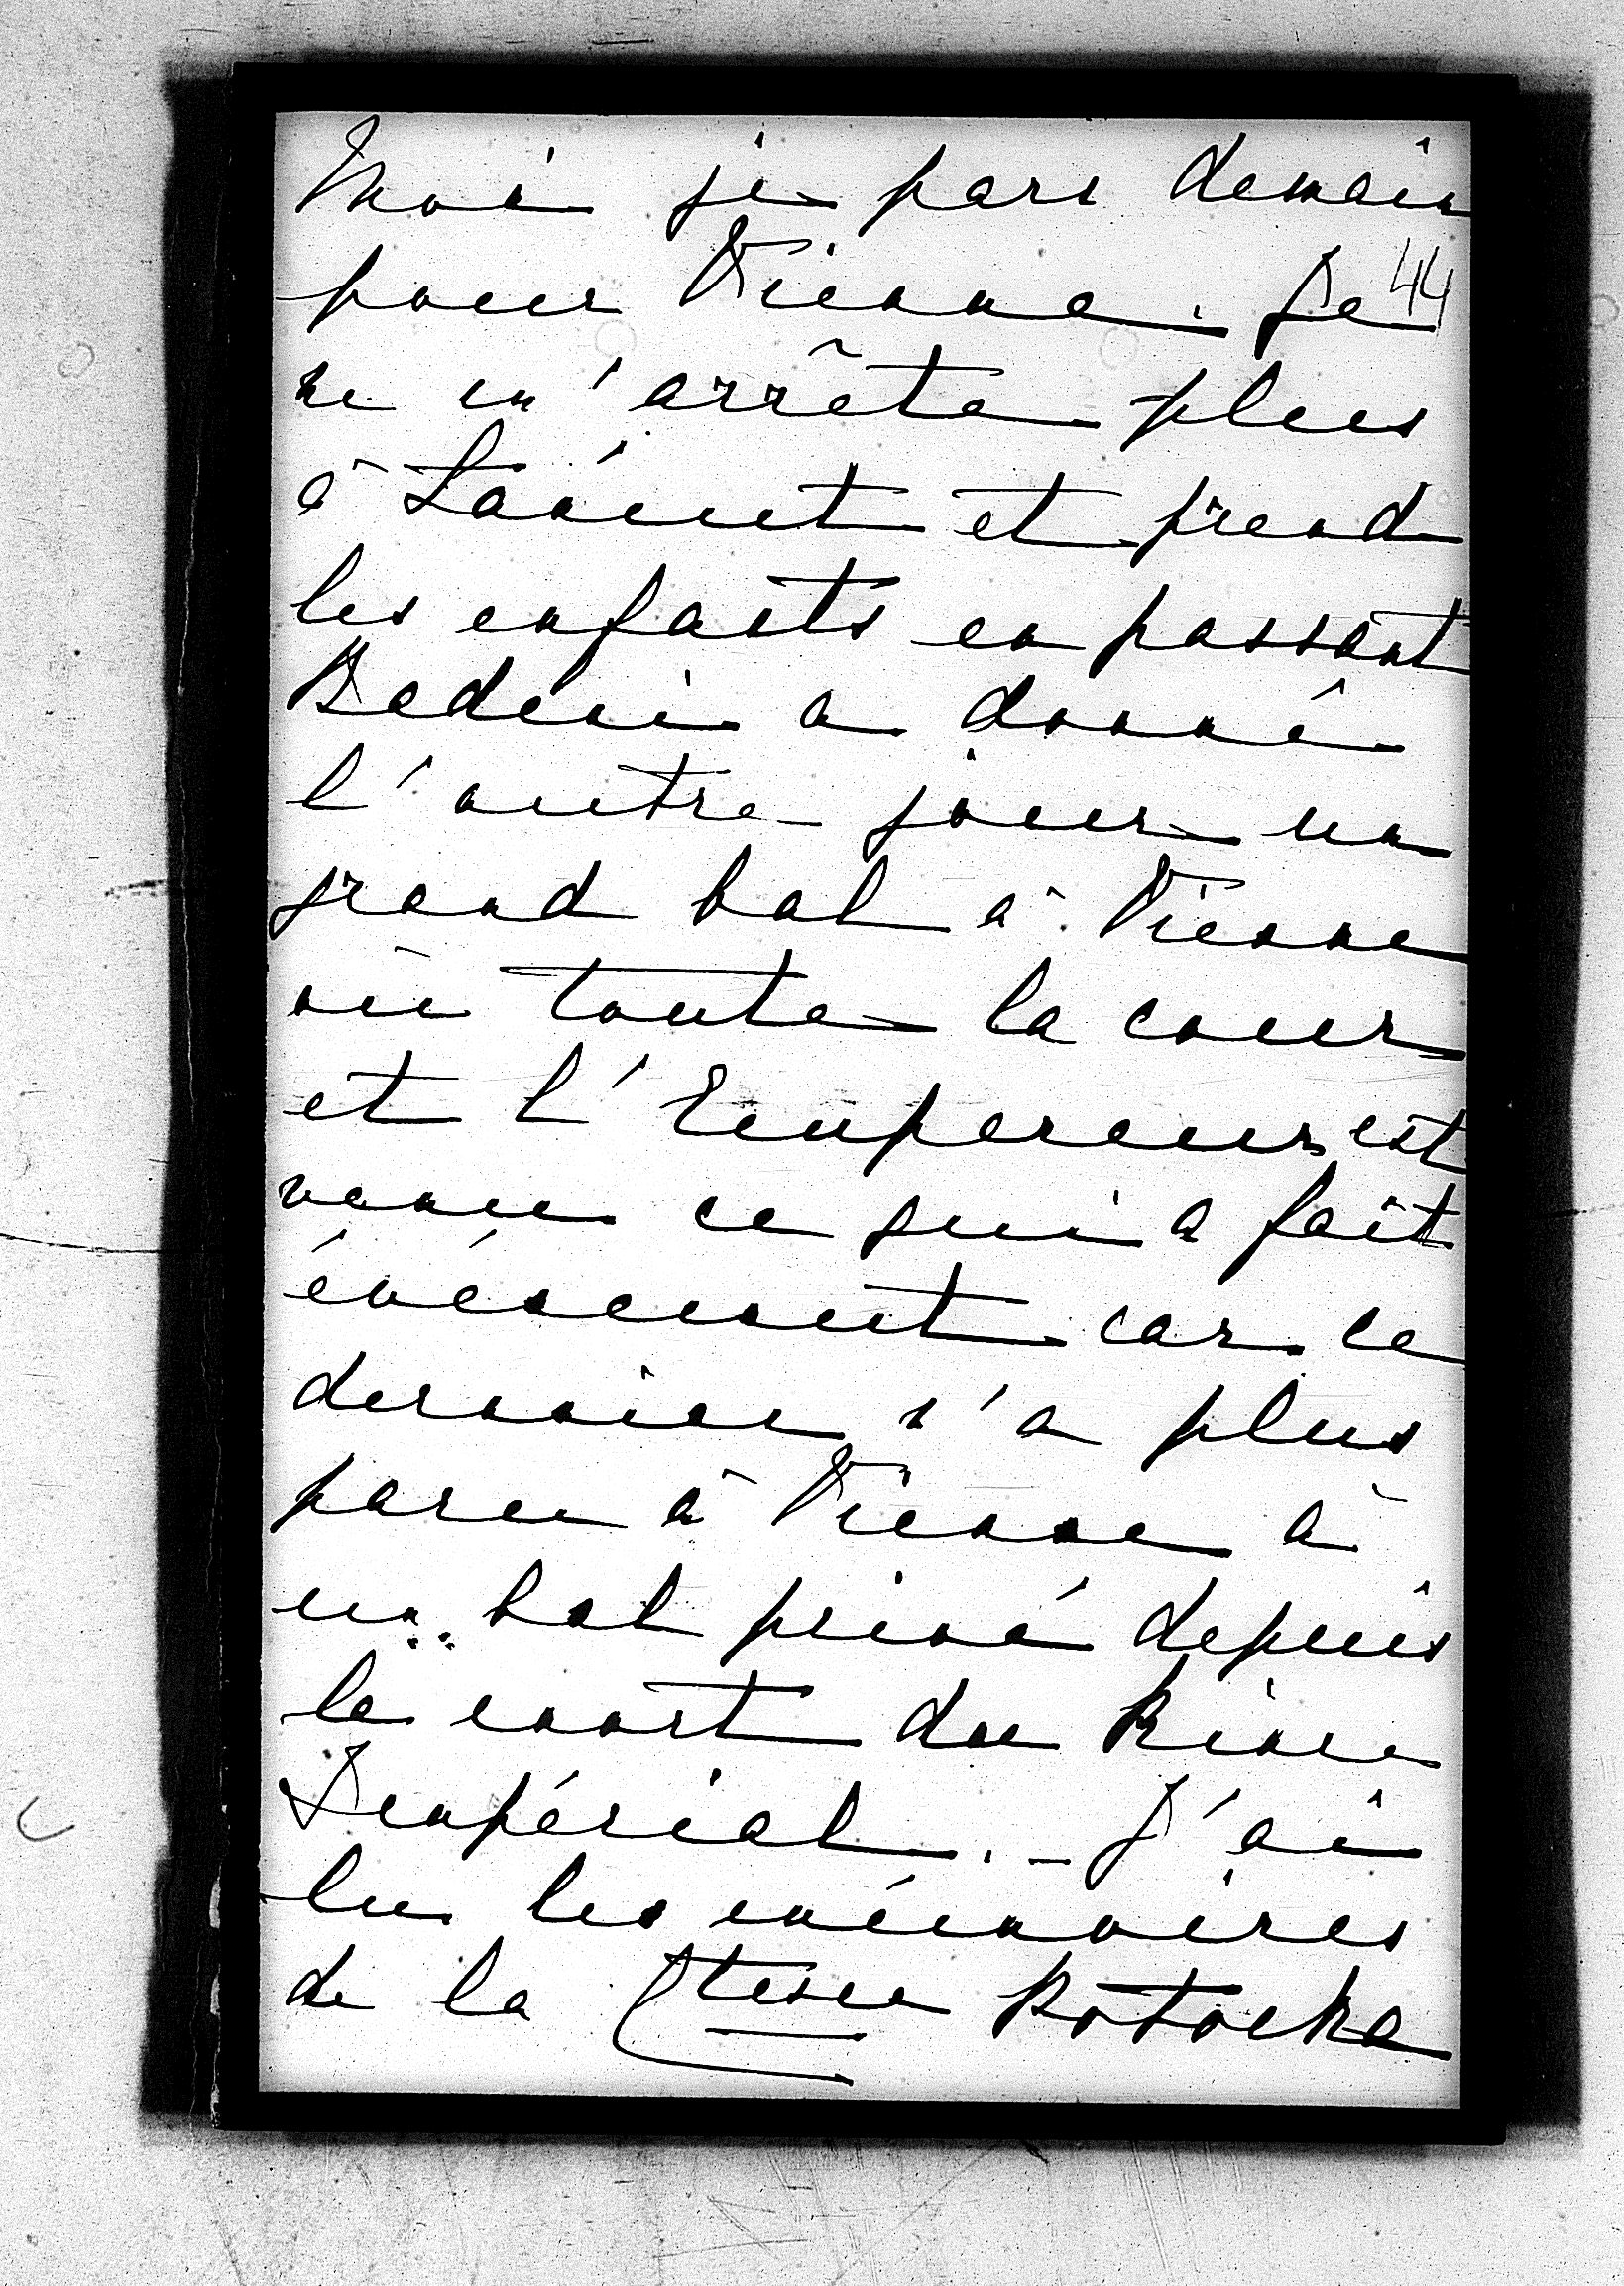 Moi je pars demain
pour Vienne. Je 44
ne m'arrête plus
à Łańcut et prend
les enfants en passant
Badeni a donné
l'autre jour un
grand bal à Vienne
où toute la cour
et l'Empereur est
venu ce qui a fait
événement car ce
dernier n'a plus
paru à Vienne à
un bal privé depuis
la mort du Prince
Impérial. - J'ai
lu les mémoires
de la Ctesse Potocka